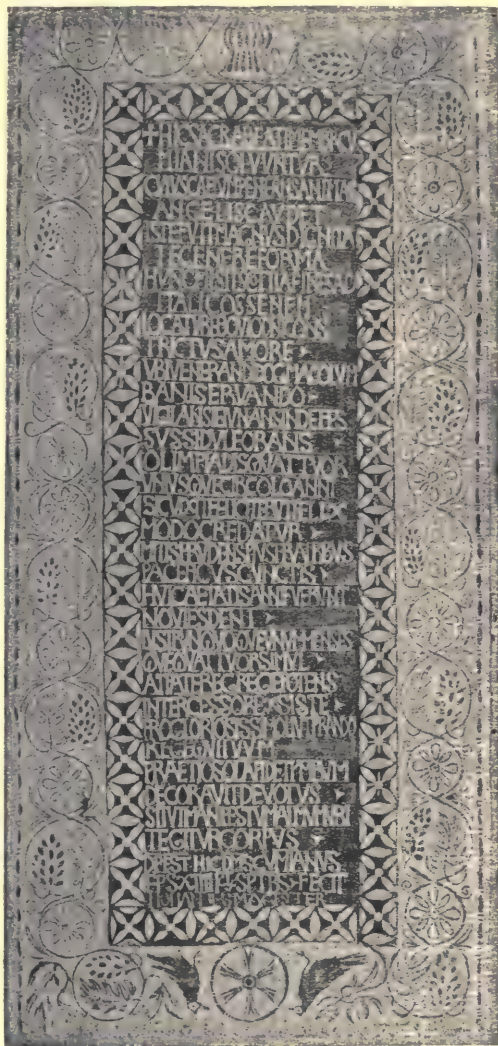 + HIC SACRA BEATI MEMBRA CV
MIANI SOLVVNTVR
CVIVS CAELVM PENETRANS ANIMA
ANGELIS GAVDET
ISTE FVIT MAGNVS DIGNITA
TE GENERE FORMA
HVNC MISIT SCOTHIA FINES AD
ITALICOS SENEM
LOCATVR EBOVIO DNI CONS
TRICTVS AMORE
VBI VENERANDO DOGMA COLVM
BANI SERVANDO
VIGILANS IEIVNANS INDEFES
SVS SEDVLE ORANS
OLIMPIADIS QVATTVOR
VNIVSQVE CIRCOLO ANNI
SIC VIXIT FELICITER VT FELIX
MODO CREDATVR
MITIS PRVDENS PIVS FRATRIBVS
PACIFICVS CVNCTIS
HVIC AETATIS ANNI FVERVNT
NOVIES DENI
LVSTRVM QVOQVE VNVM MENSIS
QVE QVATTVOR SIMVL
AT PATER EGREGIE POTENS
INTERCESSOR EXISTE
PRO GLORIOSISSIMO LIVTPRANDO
REGE QVI TVVM
PRAETIOSO LAPIDE TYMBVM
DECORAVIT DEVOTVS
SIT VT MANIFESTVM ALMVM VBI
TEGITVR CORPVS
EST HIC CVMIANVS
XIIII FECIT
MAGISTER